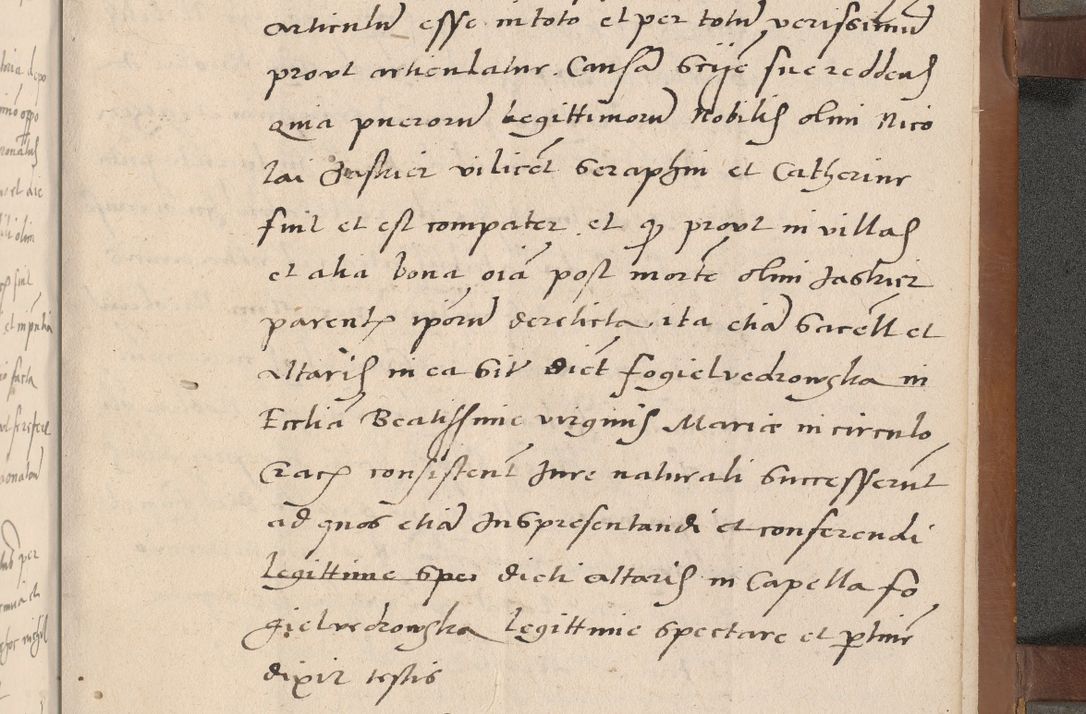 articulũ esse in toto et per totũ verissimũ
prout articulatur. Causã sciẽ sue reddens
quia puerorũ legittimorũ Nobilis olim Nico
lai Jaskier vilicẽt Seraphin et Catherine
fuit et est compater et qꝫ prout in villas
et alia bona oĩa post mortẽ olim Jaskier
parentꝭ ipõrũ derelicta ita etiã sacell et
altaris in ea sit dict fogielvedrowska in
Ecclĩa Beatissime virginis Marie in circulo
Cracꝭ consisten̄t Jure naturali successerũt
ad quos etiã Jus presentandi et conferendi
legittime spes dicti altaris in Capella fo
gielvedrowska legittime spectare et ꝑtiner̃
dixit testis